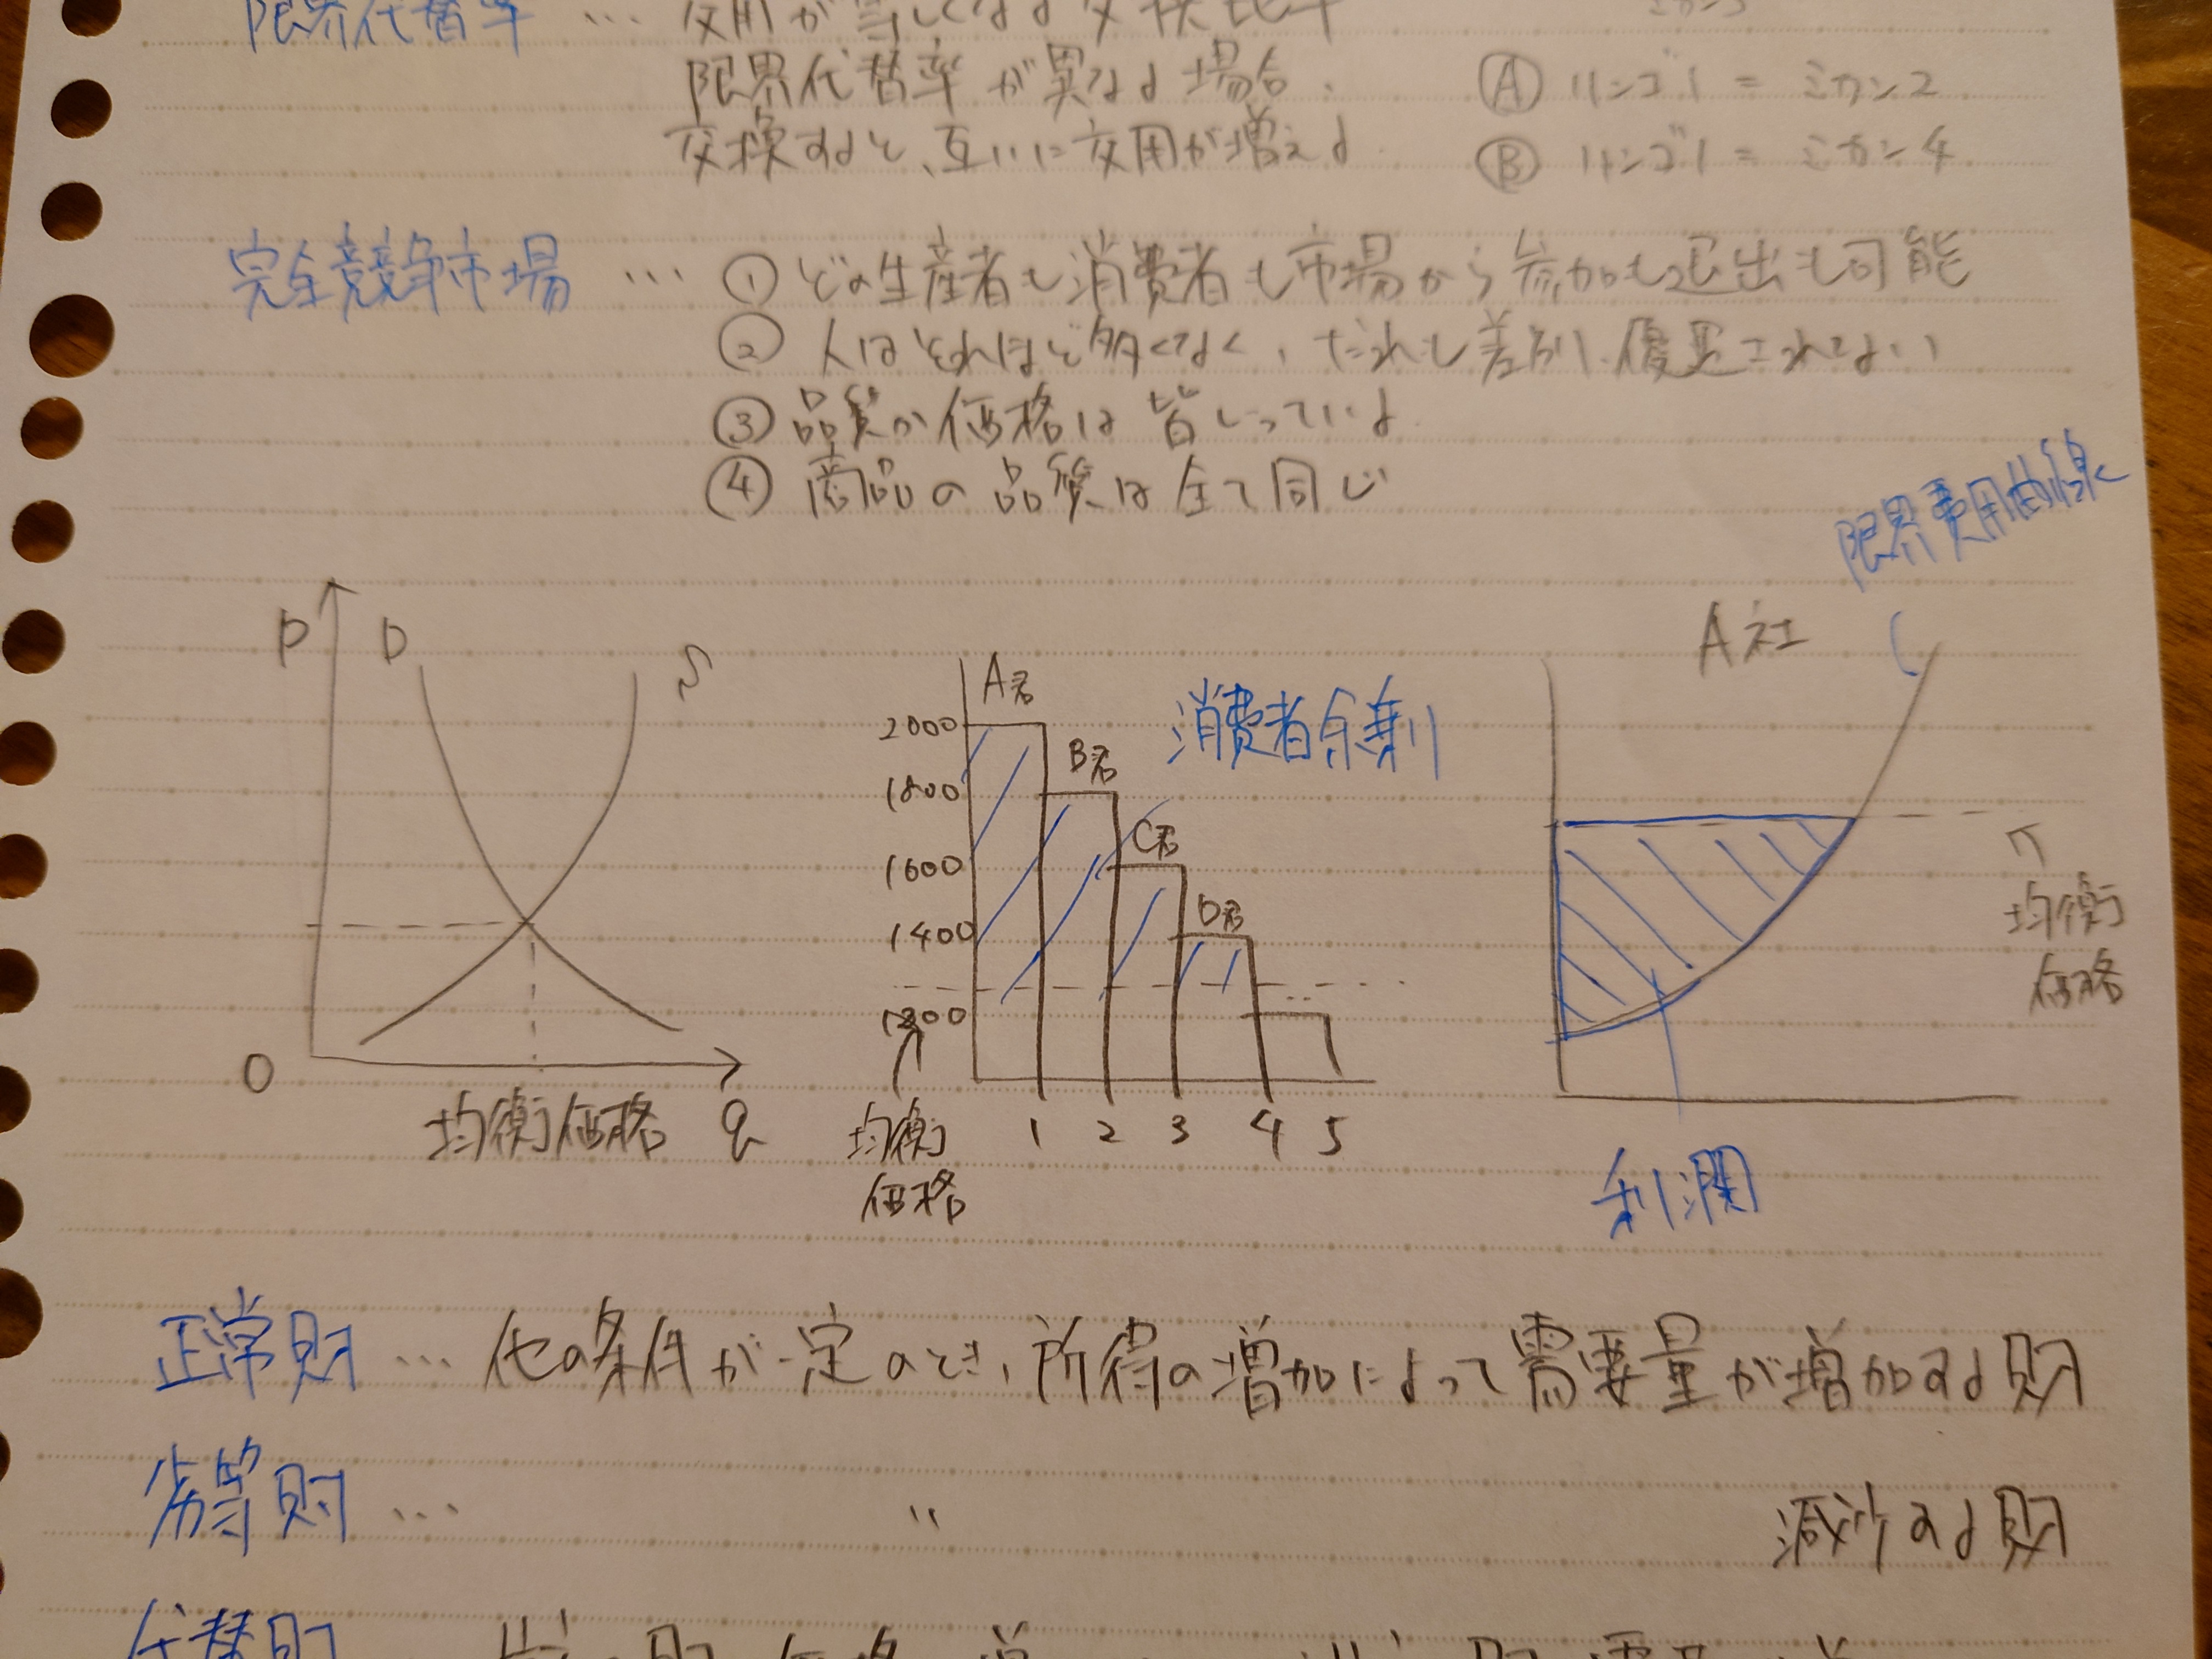 限界代替率 … 効用が等しくなる交換比率
限界代替率が異なる場合、
交換すると、互いに効用が増える
Ⓐ リンゴ1 = ミカン2
Ⓑ リンゴ1 = ミカン4
完全競争市場 … ① どの生産者も消費者も市場から参加も退出も可能
② 人はそれほど多くなく、だれも差別、優遇されない
③ 品質か価格は皆しっている
④ 商品の品質は全て同じ
P
D
S
O
均衡価格
q
消費者余剰
A君
B君
C君
D君
2000
1800
1600
1400
均衡
価格
1 2 3 4 5
限界費用曲線
A社
均衡
価格
利潤
正常財 … 他の条件が一定のとき、所得の増加によって需要量が増加する財
劣等財 … 〃 減少する財